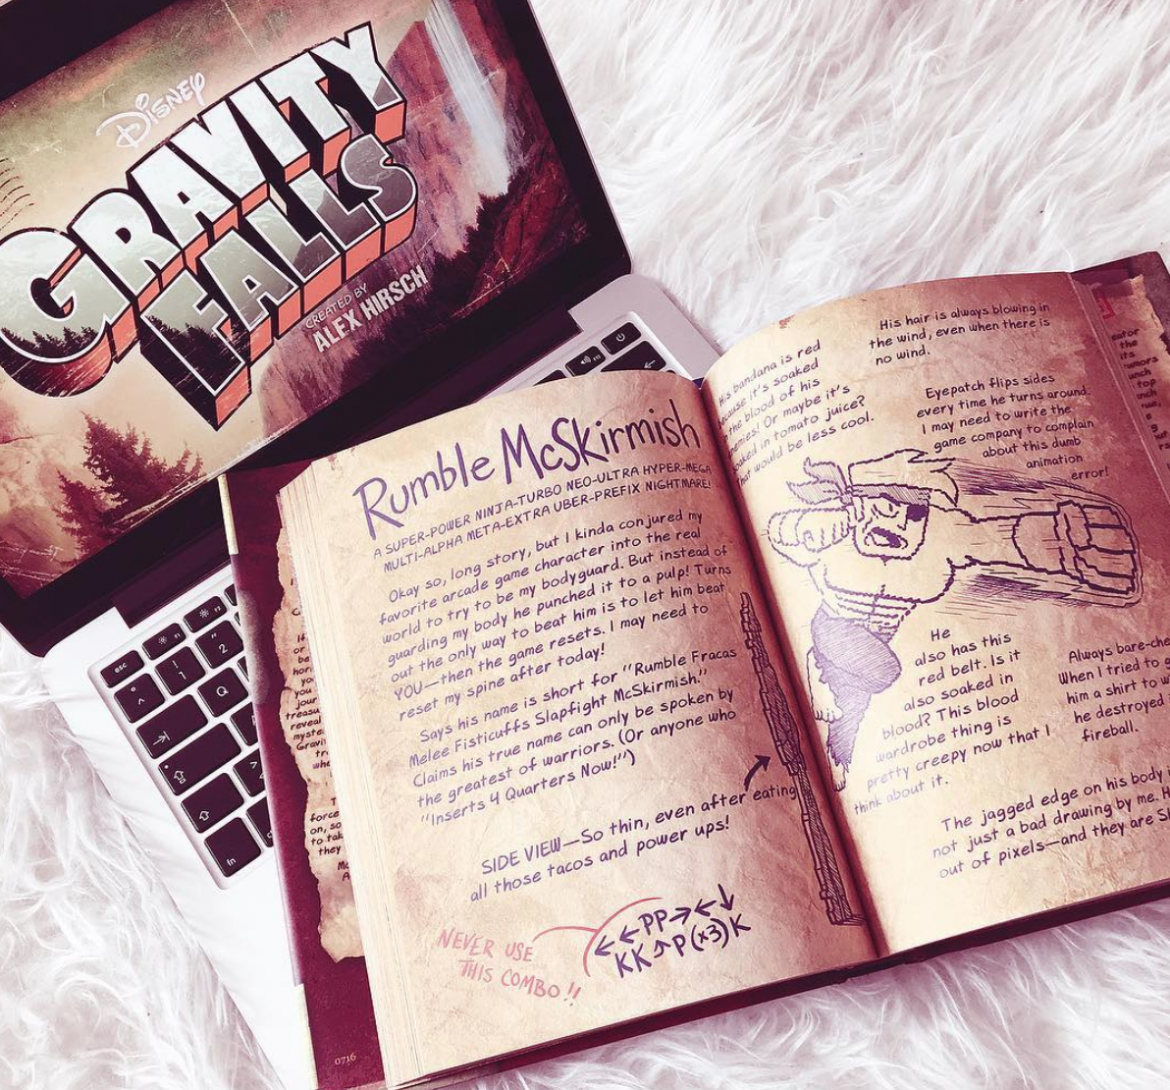 Disney
GRAVITY
FALLS
CREATED BY
ALEX HIRSCH
esc
fn
Rumble McSkirmish
A SUPER-POWER NINJA-TURBO NEO-ULTRA HYPER-MEGA
MULTI-ALPHA META-EXTRA UBER-PREFIX NIGHTMARE!
Okay so, long story, but I kinda conjured my
favorite arcade game character into the real
world to try to be my bodyguard. But instead of
guarding my body he punched it to a pulp! Turns
out the only way to beat him is to let him beat
YOU—then the game resets. I may need to
reset my spine after today!
Says his name is short for "Rumble Fracas
Melee Fisticuffs Slapfight McSkirmish."
Claims his true name can only be spoken by
the greatest of warriors. (Or anyone who
"Inserts 4 Quarters Now!")
SIDE VIEW—So thin, even after eating
all those tacos and power ups!
NEVER USE
THIS COMBO!!
←←PP→←↓
KK↗P(x3)K
0716
His bandana is red
it's soaked
the blood of his
Or maybe it's
in tomato juice?
That would be less cool.
His hair is always blowing in
the wind, even when there is
no wind.
Eyepatch flips sides
every time he turns around.
I may need to write the
game company to complain
about this dumb
animation
error!
He
also has this
red belt. Is it
also soaked in
blood? This blood
wardrobe thing is
pretty creepy now that I
think about it.
Always
When I tried to
him a shirt to
he destroyed
fireball.
The jagged edge on his body
not just a bad drawing by me.
out of pixels—and they are